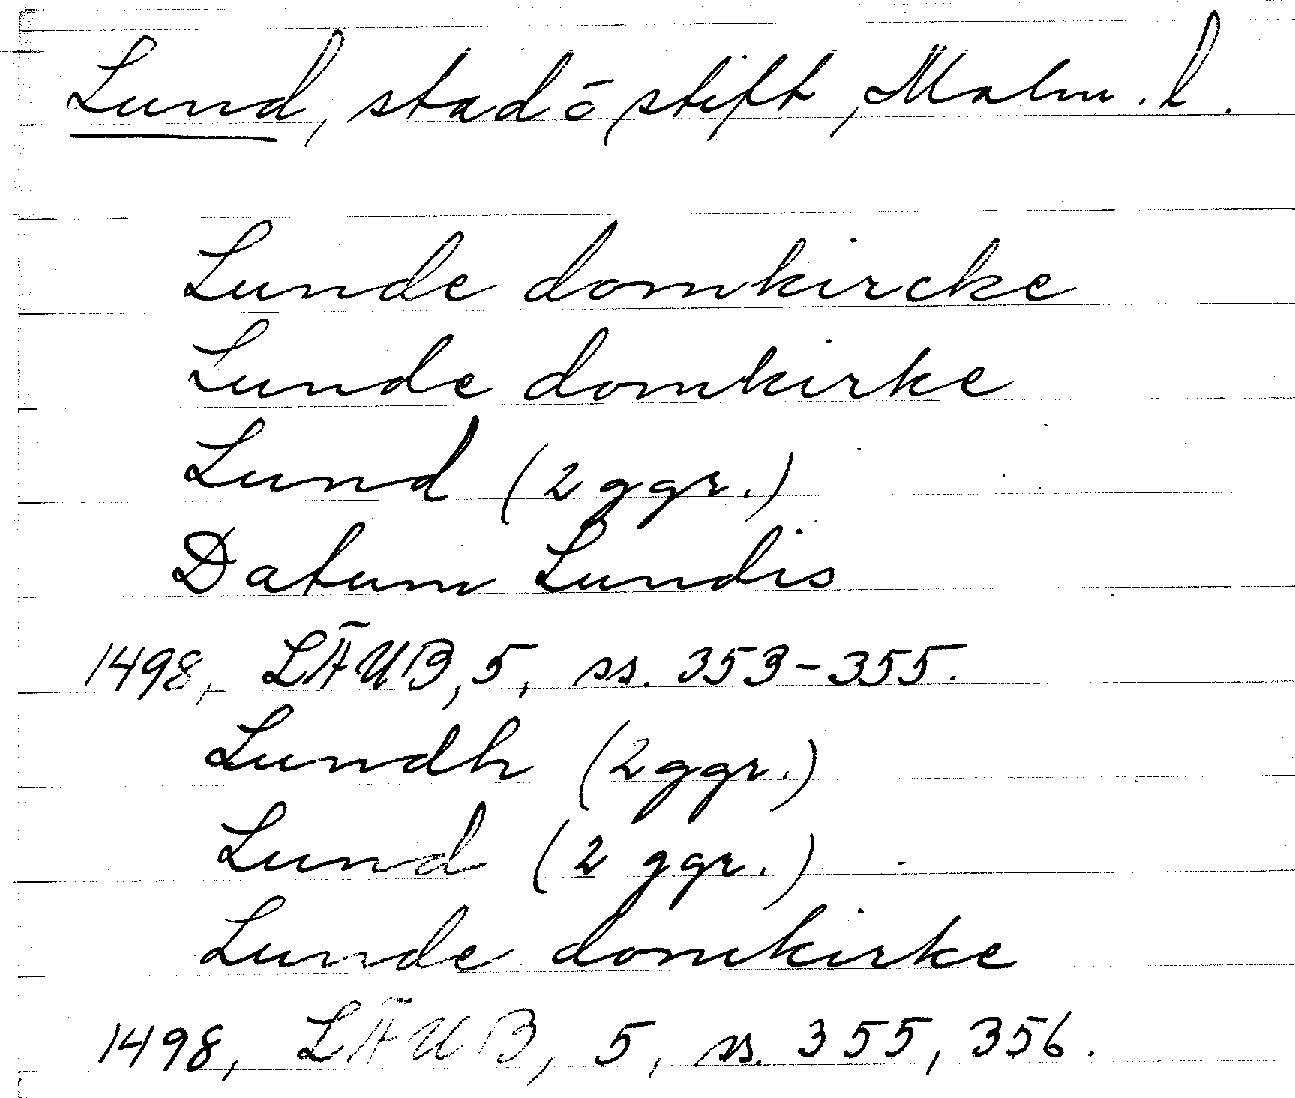 Lund, stad o stift, Malm. l.
Lunde domkircke
Lunde domkirke
Lund (2 ggr.)
Datum Lundis
1498, LÄUB, 5, ss. 353-355.
Lundh (2 ggr.)
Lund (2 ggr.)
Lunde domkirke
1498, LÄUB, 5, ss. 355, 356.